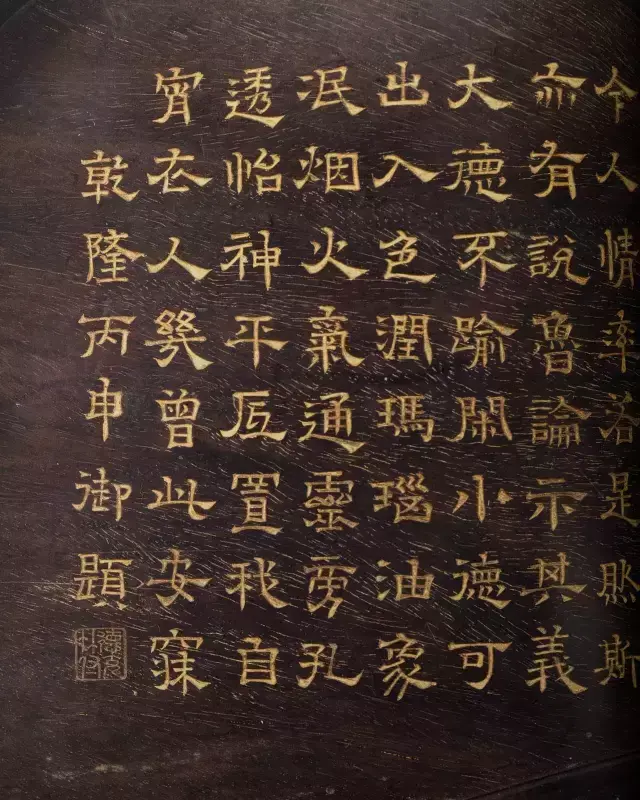 今人情率若是然斯
亦有說魯論示其義
大德不踰閑小德可
出入色潤瑪瑙油象
泯烟火氣通靈旁孔
透怡神平底置我自
宵衣人幾曾此安寐
乾隆丙申御題